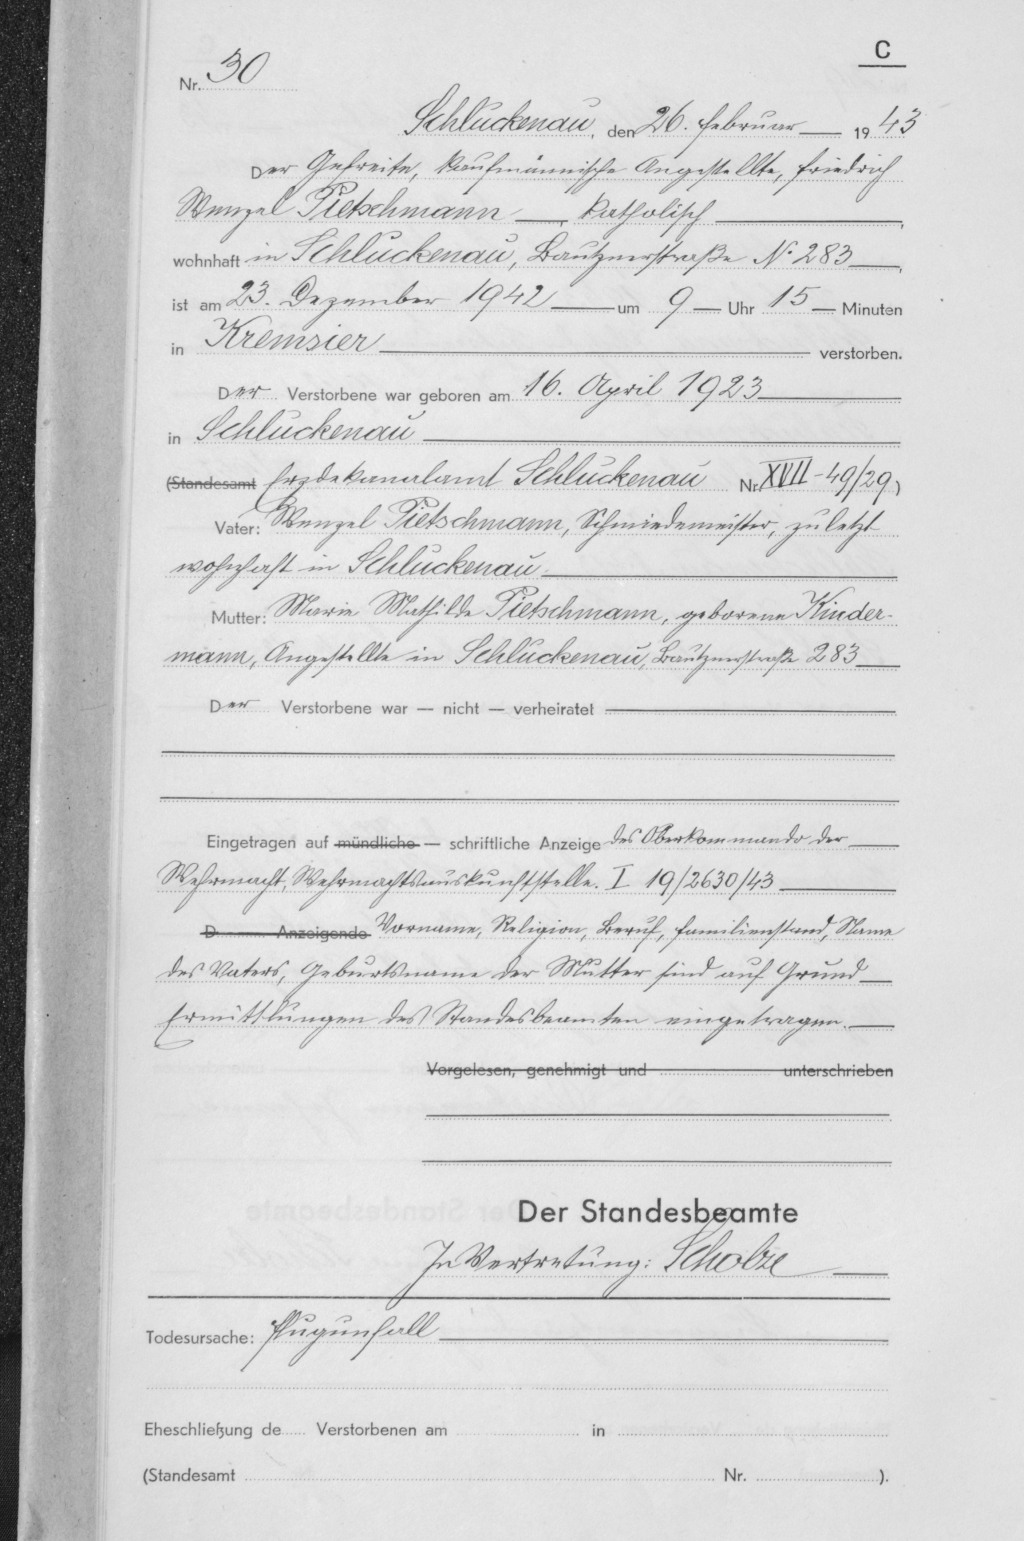 C
Nr. 30
Schluckenau, den 26. Februar 1943
Der Gefreite, kaufmännische Angestellte, Friedrich
Wenzel Pietschmann, katholisch,
wohnhaft in Schluckenau, Bautznerstraße No 283,
ist am 23. Dezember 1942 um 9 Uhr 15 Minuten
in Kremsier verstorben.
Der Verstorbene war geboren am 16. April 1923
in Schluckenau
(Standesamt Erzdekanalamt Schluckenau Nr. XVII-49/29)
Vater: Wenzel Pietschmann, Schmiedemeister, zuletzt
wohnhaft in Schluckenau.
Mutter: Marie Mathilde Pietschmann, geborene Kinder-
mann, Angestellte in Schluckenau, Bautznerstraße 283
Der Verstorbene war — nicht — verheiratet
Eingetragen auf mündliche — schriftliche Anzeige des Oberkommando der
Wehrmacht, Wehrmachtsauskunftstelle. I 19/2630/43
D Anzeigende Vorname, Religion, Beruf, Familienstand, Name
des Vaters, Geburtsname der Mutter sind auf Grund
Ermittlungen des Standesbeamten eingetragen.
Vorgelesen, genehmigt und unterschrieben
Der Standesbeamte
In Vertretung: Scholze
Todesursache:
Eheschließung de Verstorbenen am in
(Standesamt Nr. ).